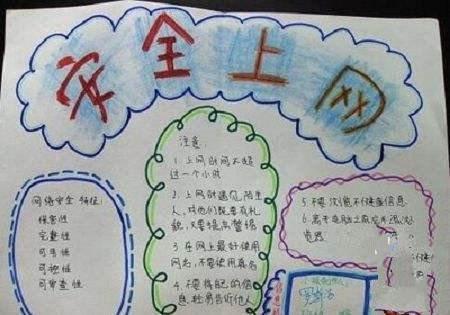 安全上网
网络安全 特征：
保密性
完整性
可用性
可控性
可审查性
注意：
1、上网时间不超
过一个小时
2、上网时遇见陌生
人，对他们既要有礼
貌，又要提高警惕
3、在网上最好使用
网名，不要使用真名
4、不要将自己的信
息，轻易告诉他人
5、不要浏览不健康信息
6、离开电脑之后应